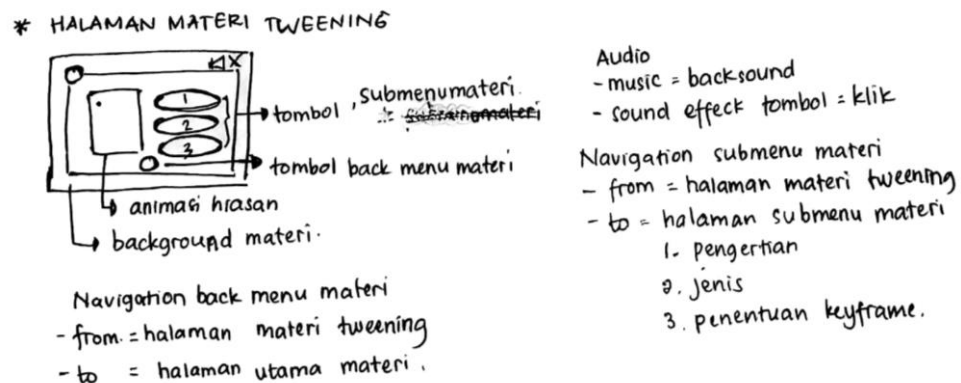 * HALAMAN MATERI TWEENING
X
1
2
3
tombol submenumateri.
tombol back menu materi
animasi hiasan
background materi.
Navigation back menu materi
- from = halaman materi tweening
- to = halaman utama materi.
Audio
- music = backsound
- sound effeck tombol = klik
Navigation submenu materi
- from = halaman materi tweening
- to = halaman submenu materi
1. pengertian
2. jenis
3. penentuan keyframe.